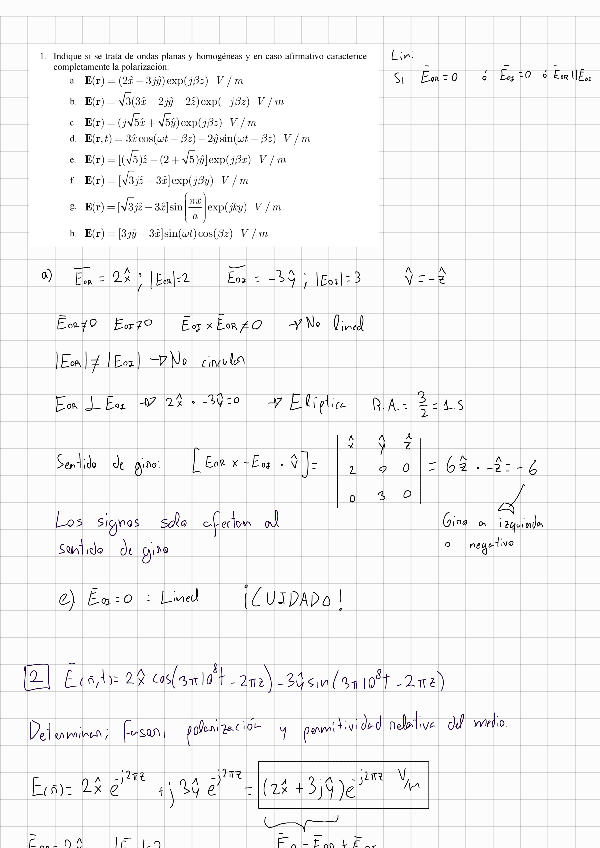 1. Indique si se trata de ondas planas y homogéneas y en caso afirmativo caracterice
completamente la polarización:
a. E(r) = (2x̂ − 3jŷ)exp(jβz) V / m
b. E(r) = √3(3x̂ 2jŷ 2ẑ)exp( jβz) V / m
c. E(r) = (j√5x̂ + √5ŷ)exp(jβz) V / m
d. E(r,t) = 3x̂cos(ωt − βz) − 2ŷsin(ωt − βz) V / m
e. E(r) = [(√5)ẑ − (2 + √5)ŷ]exp(jβx) V / m
f. E(r) = [√3jẑ − 3x̂]exp(jβy) V / m
g. E(r) = [√3jẑ − 3x̂]sin(πx/a)exp(jky) V / m
h. E(r) = [3jŷ − 3x̂]sin(ωt)cos(βz) V / m
Lin:
Si E̅OR = 0 ó E̅OI = 0 ó E̅OR || E̅OI
a) E̅OR = 2x̂ ; |EOR|=2 E̅OI = −3ŷ ; |EOI|=3 v̂ = −ẑ
E̅OR≠0 EOI≠0 E̅OI × E̅OR ≠ 0 → No lineal
|EOR| ≠ |EOI| → No circular
EOR ⊥ EOI → 2x̂ · −3ŷ=0 → Elíptica R.A.= 3/2 = 1.5
Sentido de giro: [EOR × −EOI · v̂] = | x̂ ŷ ẑ | 2 0 0 | 0 3 0 | = 6ẑ · −ẑ = −6
Los signos solo afectan al
sentido de giro
Giro a izquierda
o negativo
e) E̅OI=0 : Lineal ¡CUIDADO!
2 E̅(r̄,t)= 2x̂ cos(3π10⁸t − 2πz) − 3ŷ sin(3π10⁸t − 2πz)
Determinar; fasor, polarización y permitividad relativa del medio.
E(r̄) = 2x̂ e^−j2πz + j3ŷ e^−j2πz = (2x̂ + 3jŷ)e^−j2πz V/m